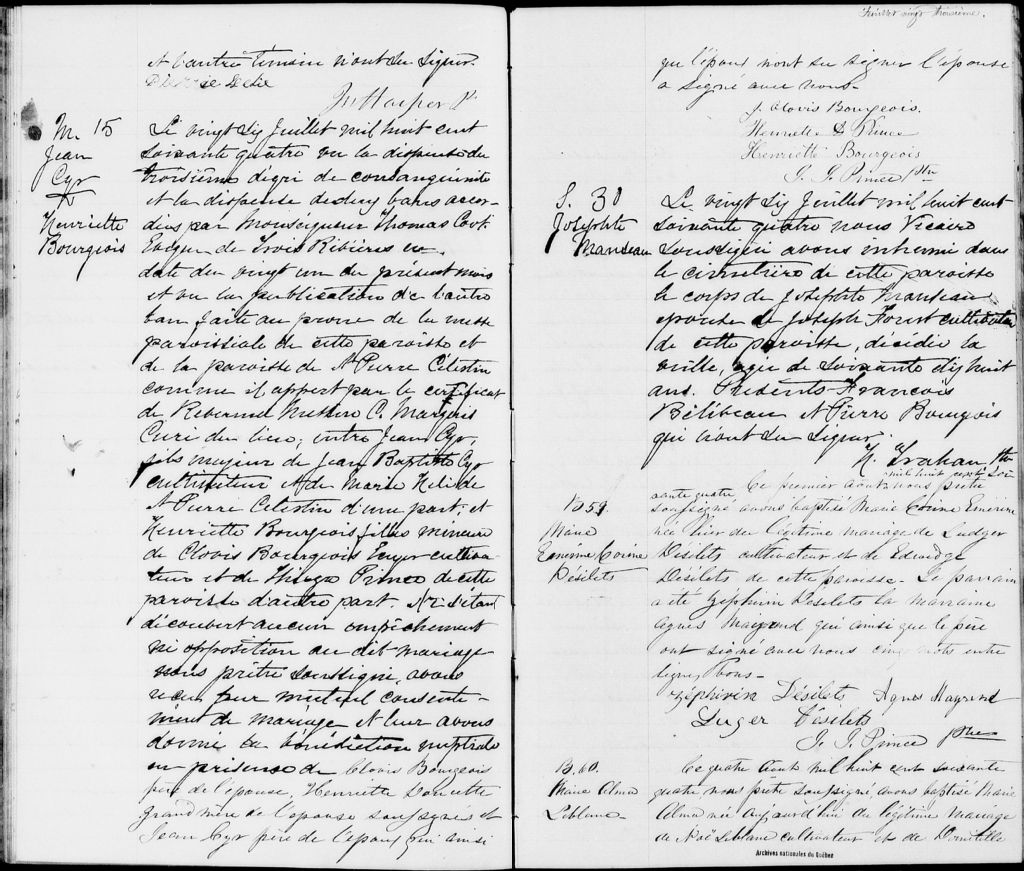 et l'autre témoin n'ont su signer.
J. Harper Ptre
M. 15
Jean
Cyr
&
Henriette
Bourgeois
Le vingt six Juillet mil huit cent
soixante quatre vu la dispense du
troisième dégré de consanguinité
et la dispense de deux bans accor-
dées par Monseigneur Thomas Cook
Evêque de Trois Rivières en
date du vingt un du présent mois
et vu la publication de l'autre
ban faite au prone de la messe
paroissiale de cette paroisse et
de la paroisse de St Pierre Célestin
comme il appert par le certificat
de Réverend Messire C. Marquis
Curé du lieu; entre Jean Cyr,
fils majeur de Jean Baptiste Cyr
cultivateur et de Marie Heli de
St Pierre Celestin d'une part; et
Henriette Bourgeois fille mineure
de Clovis Bourgeois Ecuyer cultiva
teur et de Prince de cette
paroisse d'autre part. Ne s'étant
découvert aucun empêchement
ni opposition au dit mariage
nous prêtre soussigné, avons
reçu leur mutuel consente-
ment de mariage et leur avons
donné la bénédiction nuptiale
en présence de Clovis Bourgeois
père de l'épouse, Henriette Doucette
grand'mère de l'épouse soussignés et
Jean Cyr père de l'époux qui ainsi
Juillet vingt troisième.
que l'époux n'ont su signer l'épouse
a signé avec nous.
J. Clovis Bourgeois.
Henriette D. Prince
Henriette Bourgeois
J. J. Prince Ptre
S. 30
Josephte
Manseau
Le vingt six Juillet mil huit cent
soixante quatre nous Vicaire
soussigné avons inhumé dans
le cimetière de cette paroisse
le corps de Josephte Manseau
épouse de Joseph Forest cultivateur
de cette paroisse, décédée la
veille, agée de soixante dix huit
ans. Présents François
Bélibeau et Pierre Bourgeois
qui n'ont su signer.
N. Trahan Ptre
mil huit cent soi
xante quatre
B 59.
Marie
Emérine Corine
Désilets
Ce premier Août nous prêtre
soussigné avons baptisé Marie Corine Emérine
née hier du légitime mariage de Ludger
Désilets cultivateur et de Edwidge
Désilets de cette paroisse. Le parrain
a été Zéphirin Désilets la marraine
Agnes Mayrand qui ainsi que le père
ont signé avec nous cinq mots entre
lignes bons.
Zéphirin Désilets Agnes Mayrand
Luger Désilets
J. J. Prince Ptre
B. 60.
Marie Alma
Leblanc
Ce quatre Août mil huit cent soixante
quatre nous prêtre soussigné, avons baptisé Marie
Alma née aujourd'hui du légitime mariage
de Noë Leblanc cultivateur et de Domitille
Archives nationales du Québec